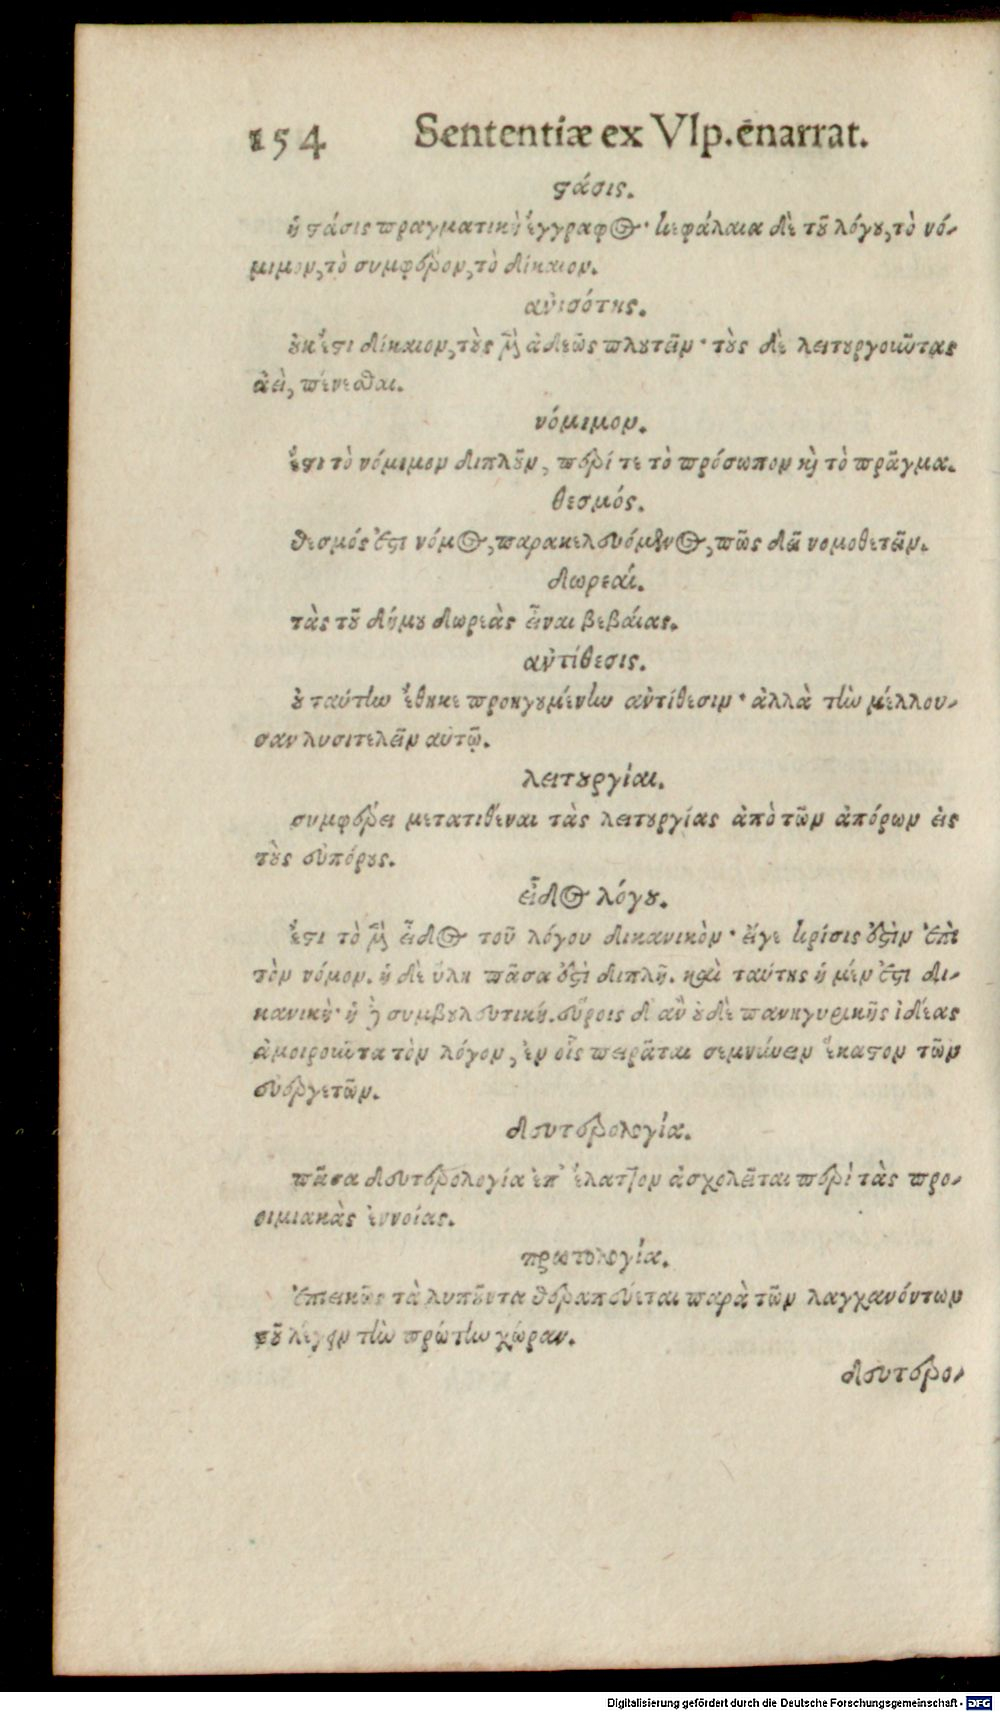 154 Sententiæ ex Vlp. enarrat.
στάσις.
ἡ στάσις πραγματικὴ ἔγγραφος· κεφάλαια δὲ τοῦ λόγου, τὸ νό-
μιμον, τὸ συμφέρον, τὸ δίκαιον.
ἀνισότης.
οὐκ ἔστι δίκαιον, τοὺς μὲν ἀδεῶς πλουτεῖν· τοὺς δὲ λειτουργοῦντας
ἀεὶ, πένεσθαι.
νόμιμον.
ἔστι τὸ νόμιμον διπλοῦν, περί τε τὸ πρόσωπον καὶ τὸ πρᾶγμα.
θεσμός.
θεσμός ἐστι νόμος, παρακελευόμενος, πῶς δεῖ νομοθετεῖν.
δωρεαί.
τὰς τοῦ δήμου δωρεὰς εἶναι βεβαίας.
ἀντίθεσις.
οὐ ταύτην ἔθηκε προηγουμένην ἀντίθεσιν· ἀλλὰ τὴν μέλλου-
σαν λυσιτελεῖν αὐτῷ.
λειτουργίαι.
συμφέρει μετατιθέναι τὰς λειτουργίας ἀπὸ τῶν ἀπόρων εἰς
τοὺς εὐπόρους.
εἶδος λόγου.
ἔστι τὸ μὲν εἶδος τοῦ λόγου δικανικὸν· εἴγε κρίσις ἐστὶν ἐπὶ
τὸν νόμον. ἡ δὲ ὕλη πᾶσα ἐστὶ διπλῆ. καὶ ταύτης ἡ μέν ἐστι δι-
κανικὴ· ἡ δὲ συμβουλευτική. εὕροις δ' ἂν οὐδὲ πανηγυρικῆς ἰδέας
ἀμοιροῦντα τὸν λόγον, ἐν οἷς πειρᾶται σεμνύνειν ἕκαστον τῶν
εὐεργετῶν.
δευτερολογία.
πᾶσα δευτερολογία ἐπ' ἔλαττον ἀσχολεῖται περὶ τὰς προ-
οιμιακὰς ἐννοίας.
πρωτολογία.
ἐπιεικῶς τὰ λυποῦντα θεραπεύεται παρὰ τῶν λαγχανόντων
τοῦ λέγειν τὴν πρώτην χώραν.
δευτερο-
Digitalisierung gefördert durch die Deutsche Forschungsgemeinschaft - DFG